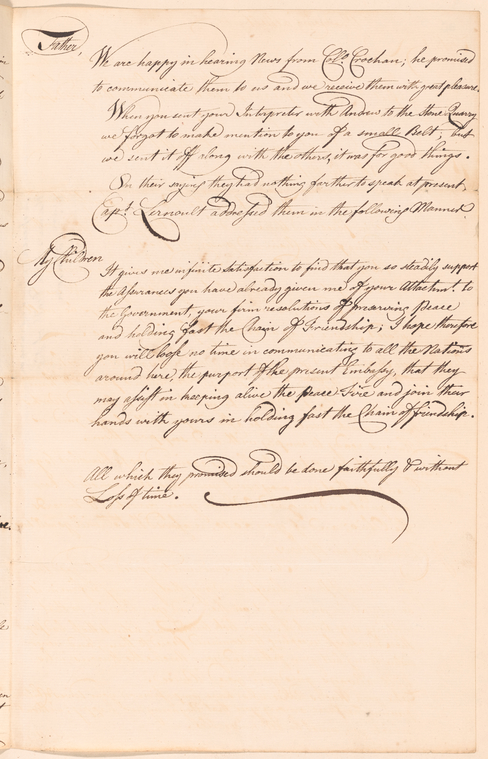 Father,
We are happy in hearing News from Col.o Crochan; he promised
to communicate them to us and we receive them with great pleasure.
When you sent your Interpreter with Andrew to the Stone Quarry
we forgot to make mention to you of a small Belt, but
we sent it off along with the others, it was for good things.
On their saying they had nothing farther to speak at present,
Capt. Lernoult addressed them in the following Manner.
My Children
It gives me infinite Satisfaction to find that you so steadily support
the Assurances you have already given me of your Attachmt. to
the Government, your firm resolutions of preserving Peace
and holding fast the Chain of Friendship; I hope therefore
you will lose no time in communicating to all the Nations
around here, the purport of the present Embassy, that they
may assist in keeping alive the Peace Fire and join their
hands with yours in holding fast the Chain of friendship.
All which they promised should be done faithfully & without
Loss of time.